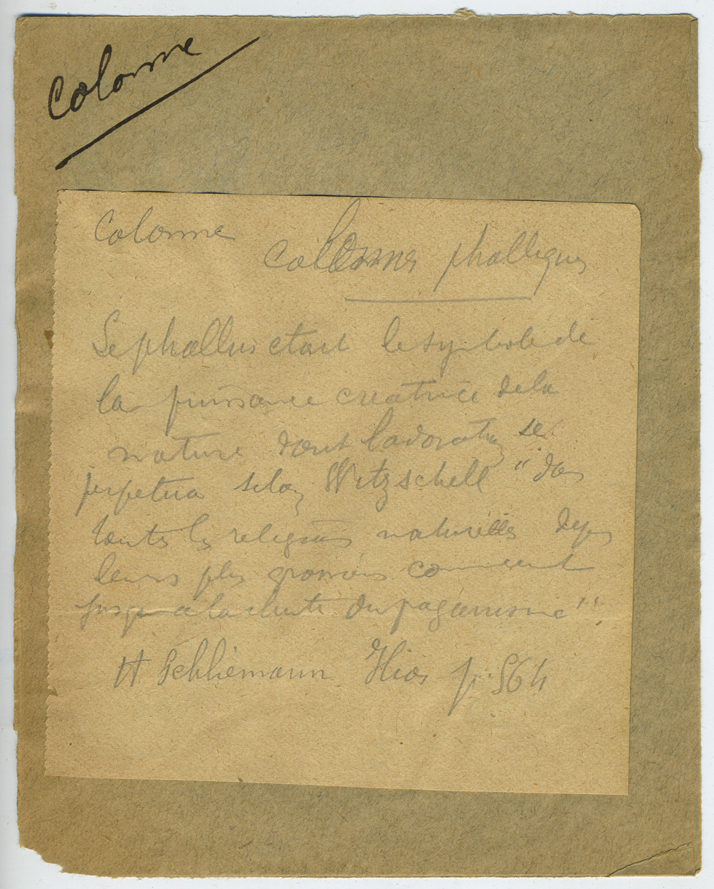 Colonne
Colonne
Colonnes phalliques
Le phallus etait le symbole de
la puissance creatrice de la
nature dont l'adoration se
perpetua selon Witzschell "dans
toutes les religions naturelles depuis
leurs plus grossiers commencement
jusqu'a la chute du paganisme".
H Schliemann Ilios p. 564